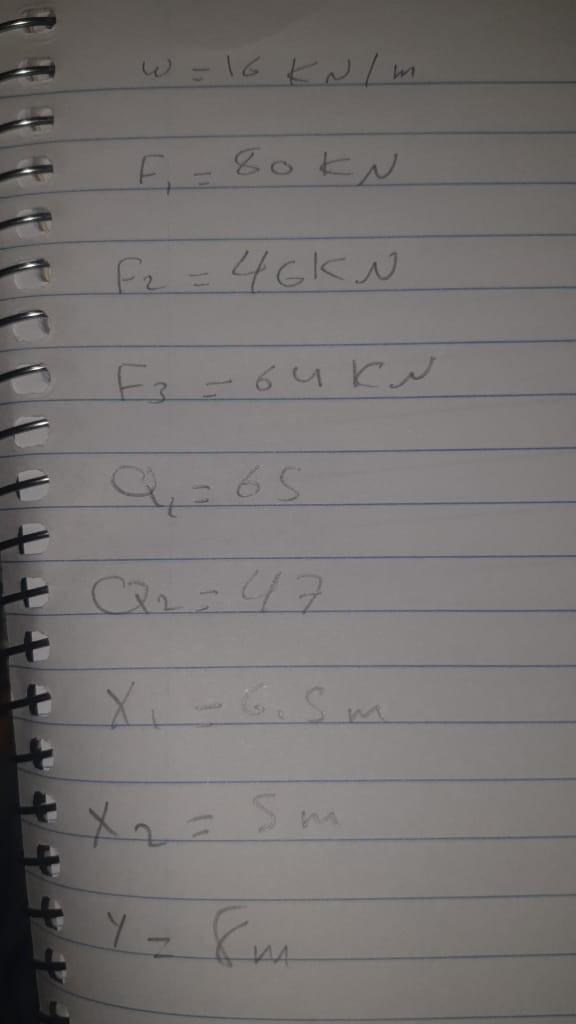 w = 16 KN/m
F1 = 80 KN
F2 = 46KN
F3 = 64 KN
Q1 = 65
Q2 = 47
X1 = 6.5m
X2 = 5m
Y = 8m